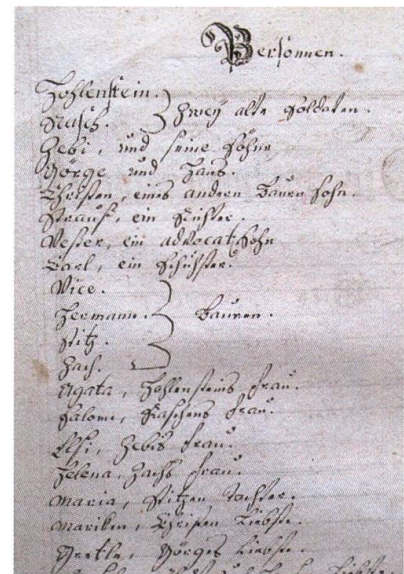 Personnen.
Hohlenstein.
Rasch. } Zwey alte Soldaten.
Hebi, und seine Söhne
Görge und Hans.
Christen, eines andern Bauren sohn.
Strauß, ein Richter.
Vesser, ein advocat Sohn
Carl, ein Schuster.
Vice.
Hermann. } Bauren.
Stitz.
Zach.
Agata, Hohlensteins frau.
Salome, Raschens frau.
Elsi, Hebis frau.
Helena, Zachs frau.
Maria, Stitzen tochter.
Mariken, Christen Liebste.
Gretle, Görges Liebste.